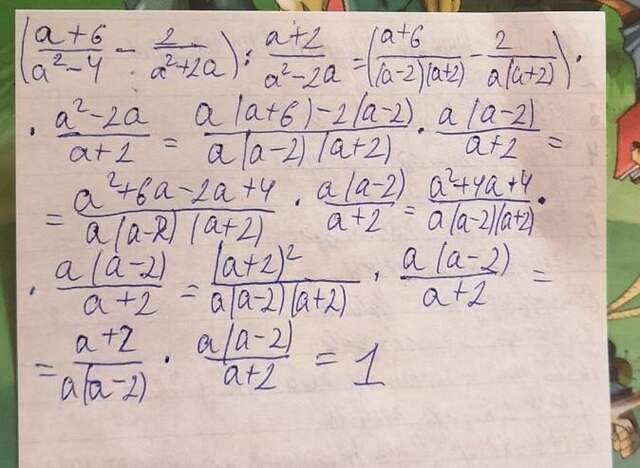 (a+6/a²-4 - 2/a²+2a) : a+2/a²-2a = (a+6/(a-2)(a+2) - 2/a(a+2)) ·
· a²-2a/a+2 = a(a+6)-2(a-2)/a(a-2)(a+2) · a(a-2)/a+2 =
= a²+6a-2a+4/a(a-2)(a+2) · a(a-2)/a+2 = a²+4a+4/a(a-2)(a+2) ·
· a(a-2)/a+2 = (a+2)²/a(a-2)(a+2) · a(a-2)/a+2 =
= a+2/a(a-2) · a(a-2)/a+2 = 1